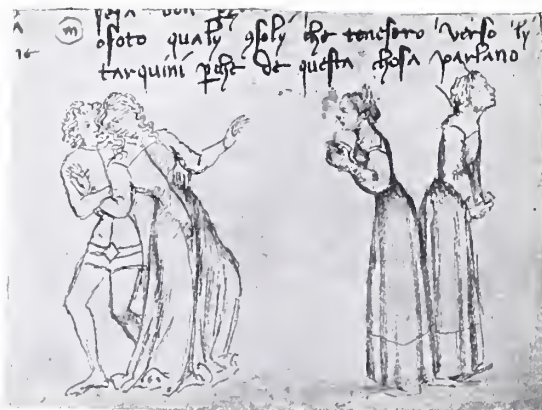 osoto qualy gsoly che tenesero verso ly
tarquini pche de questa chosa parlano
m